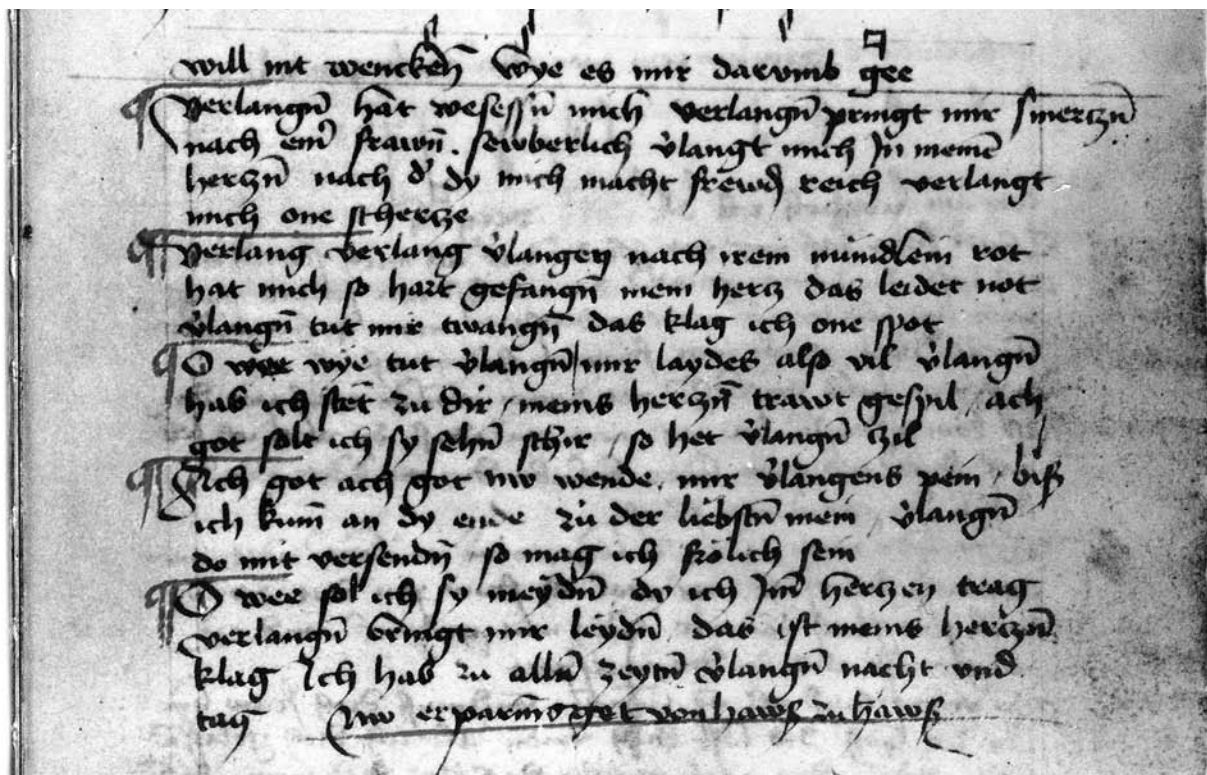 will nit wencken̄ Wye es mir darvmb gee
Verlangn̄ hat wesessn̄ mich verlangn̄ pringt mir smerczn̄
nach ein᷑ frawn̄ . sewberlich v̓langt mich Jn meine᷑
herczn̄ nach d᷑ dy mich macht frewdn̄ reich verlangt
mich one schercze
Verlang verlang v̓langen nach irem mündlein rot
hat mich so hart gefangn̄ mein hercz das leidet not
v̓langn̄ tut mir twangn̄ das klag ich one spot
O wee wye tut v̓langn̄ / mir laydes also vil v̓langn̄
hab ich stet zu dir / meins herczn̄ trawt gespil / ach
got solt ich sy sehn̄ schir / so het v̓langn̄ zil
Ach got ach got nw wende / mir v̓langens pein / biß
ich kum̄ an dy ende zu der liebstn̄ mein / v̓langn̄
do mit versendn̄ so mag ich frölich sein
O wee sol ich sy meydn̄ dy ich Jm̄ herczen trag
verlangn̄ bringt mir leydn̄ das ist meins herczn̄
klag Ich hab zu alln̄ zeytn̄ v̓langn̄ nacht vnd
tag Nw erparms got von hawß zu hawß